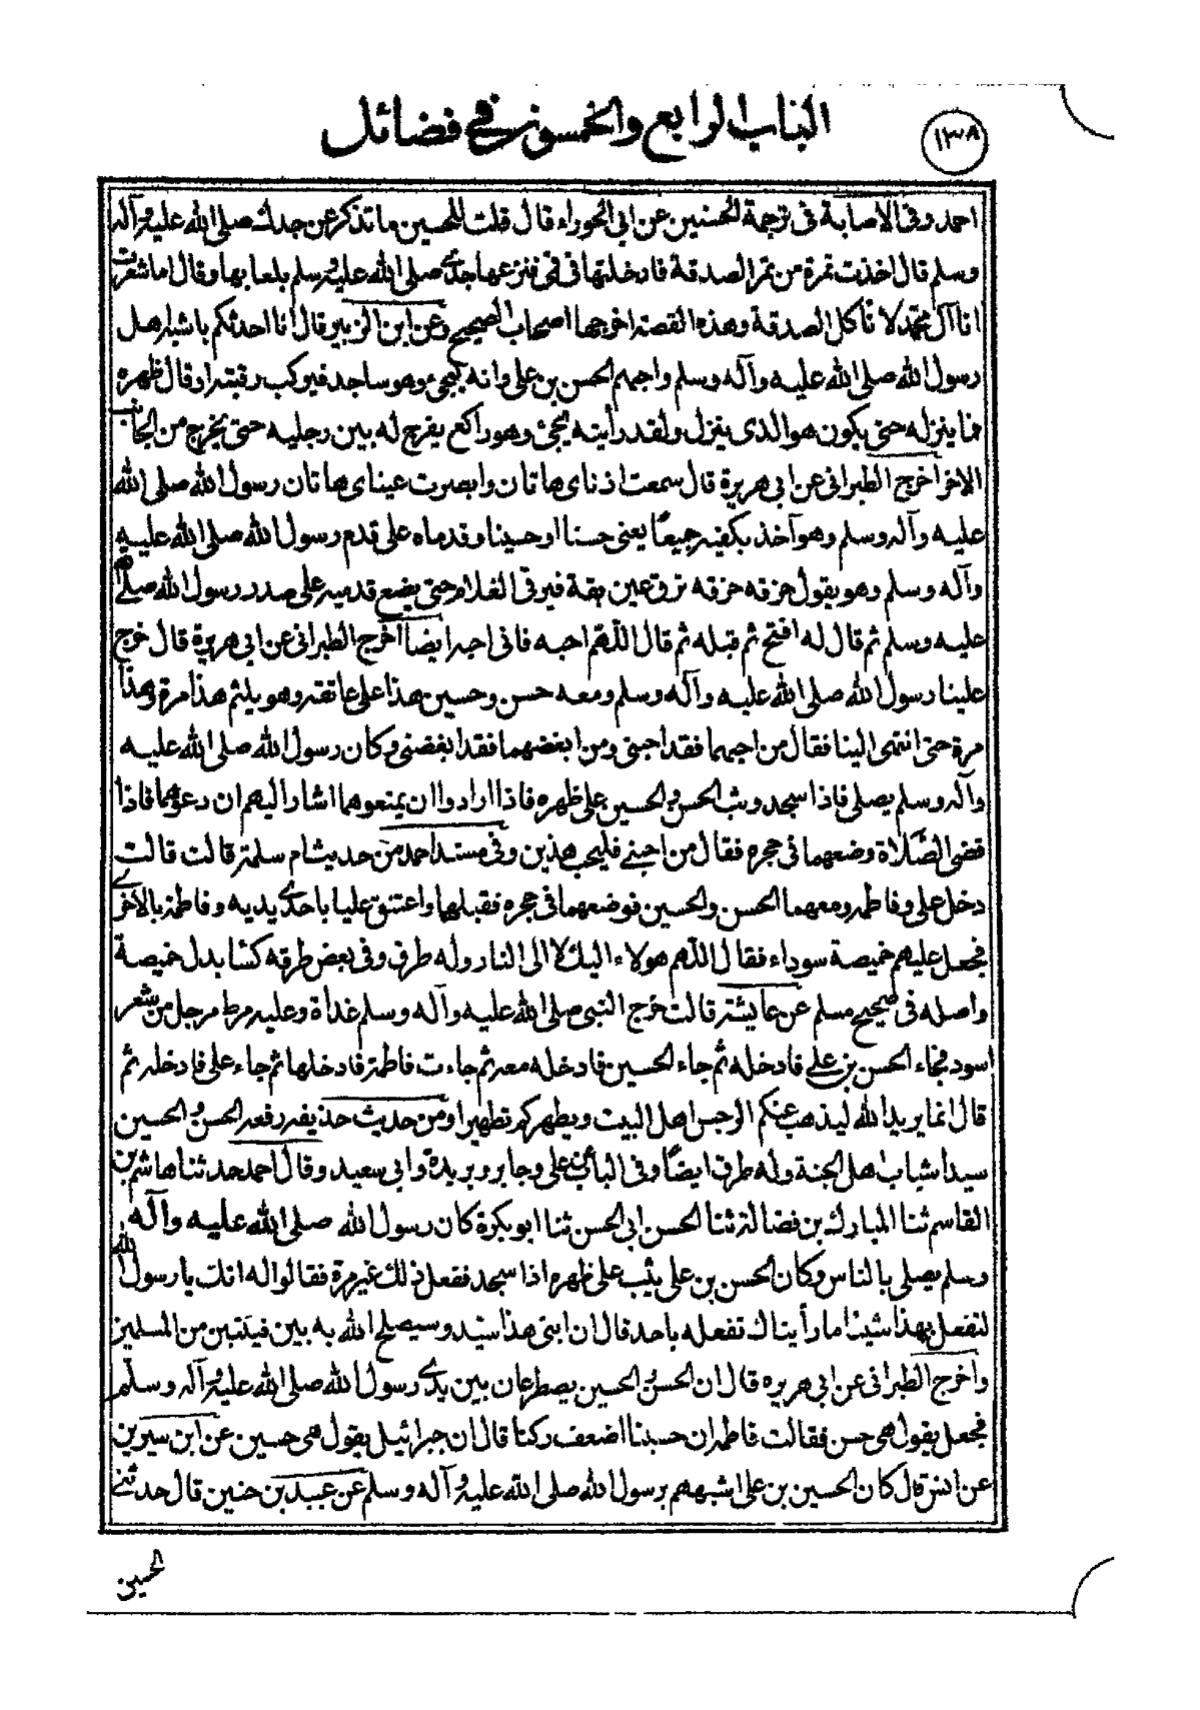 الباب الرابع والخمسون في فضائل
١٣٨
احمد وفي الاصابة في ترجمة الحسنين عن ابي الحوراء قال قلت للحسين ما تذكر عن جدك صلى الله عليه وآله
وسلم قال اخذت تمرة من تمر الصدقة فادخلتها في في فنزعها جدي صلى الله عليه وسلم بلعابها وقال اما شعرت
انا آل محمد لا نأكل الصدقة وهذه القصة اخرجها اصحاب الصحيح وعن ابن الزبير قال انا احدثكم باشبه اهل
رسول الله صلى الله عليه وآله وسلم واحبهم الحسن بن علي وانه يجيء وهو ساجد فيركب رقبته او قال ظهره
فما ينزله حتى يكون هو الذي ينزل ولقد رأيته يجئ وهو راكع يفرج له بين رجليه حتى يخرج من الجانب
الاخر اخرج الطبراني عن ابي هريرة قال سمعت اذناي هاتان وابصرت عيناي هاتان رسول الله صلى الله
عليه وآله وسلم وهو آخذ بكفيه جميعًا يعني حسنا او حسينا وقدماه على قدم رسول الله صلى الله عليه
وآله وسلم وهو يقول حزقه حزقه ترق عين بقة فيرقى الغلام حتى يضع قدميه على صدر رسول الله صلى الله
عليه وسلم ثم قال له افتح ثم قبله ثم قال اللهم احبه فاني احبه ايضا اخرج الطبراني عن ابي هريرة قال خرج
علينا رسول الله صلى الله عليه وآله وسلم ومعه حسن وحسين هذا على عاتقه وهو يلثم هذا مرة وهذا
مرة حتى انتهى الينا فقال من احبهما فقد احبني ومن ابغضهما فقد ابغضني وكان رسول الله صلى الله عليه
وآله وسلم يصلي فاذا سجد وثب الحسن والحسين على ظهره فاذا ارادوا ان يمنعوهما اشار اليهم ان دعوهما فاذا
قضى الصَّلاة وضعهما في حجره فقال من احبني فليحب هذين وفي مسند احمد من حديث ام سلمة قالت قالت
دخل علي وفاطمه ومعهما الحسن والحسين فوضعهما في حجره فقبلهما واعتنق عليا باحدي يديه وفاطمة بالاخرى
فجعل عليهم خميصة سوداء فقال اللهم هولاء اليك لا الى النار وله طرق وفي بعض طرقه كسا بدل خميصة
واصله في صحيح مسلم عن عايشة قالت خرج النبي صلى الله عليه وآله وسلم غداة وعليه مرط مرجل من شعر
اسود فجاء الحسن بن علي فادخله ثم جاء الحسين فادخله معه ثم جاءت فاطمة فادخلها ثم جاء علي فادخله ثم
قال انما يريد الله ليذهب عنكم الرجس اهل البيت ويطهركم تطهيرا ومن حديث حذيفه رفعه الحسن والحسين
سيدا شباب اهل الجنة وله طرق ايضًا وفي الباب عن علي وجابر وبريدة وابي سعيد وقال احمد حدثنا هاشم بن
القاسم ثنا المبارك بن فضالة ثنا الحسن ابي الحسن ثنا ابو بكرة كان رسول الله صلى الله عليه وآله
وسلم يصلي بالناس وكان الحسن بن علي يثب على ظهره اذا سجد ففعل ذلك غير مرة فقالوا له انك يا رسول الله
لتفعل بهذا شيئا ما رأيناك تفعله باحد قال ان ابني هذا سيّد وسيصلح الله به بين فيئتين من المسلمين
واخرج الطبراني عن ابي هريره قال ان الحسن والحسين يصطرعان بين يدي رسول الله صلى الله عليه وآله وسلم
فجعل يقول هي حسن فقالت فاطمه ان حسينا اضعف ركنا قال ان جبرائيل يقول هي حسين عن ابن سيرين
عن انس قال كان الحسين بن علي اشبههم برسول الله صلى الله عليه وآله وسلم عن عبيد بن حنين قال حدثني
الحسين